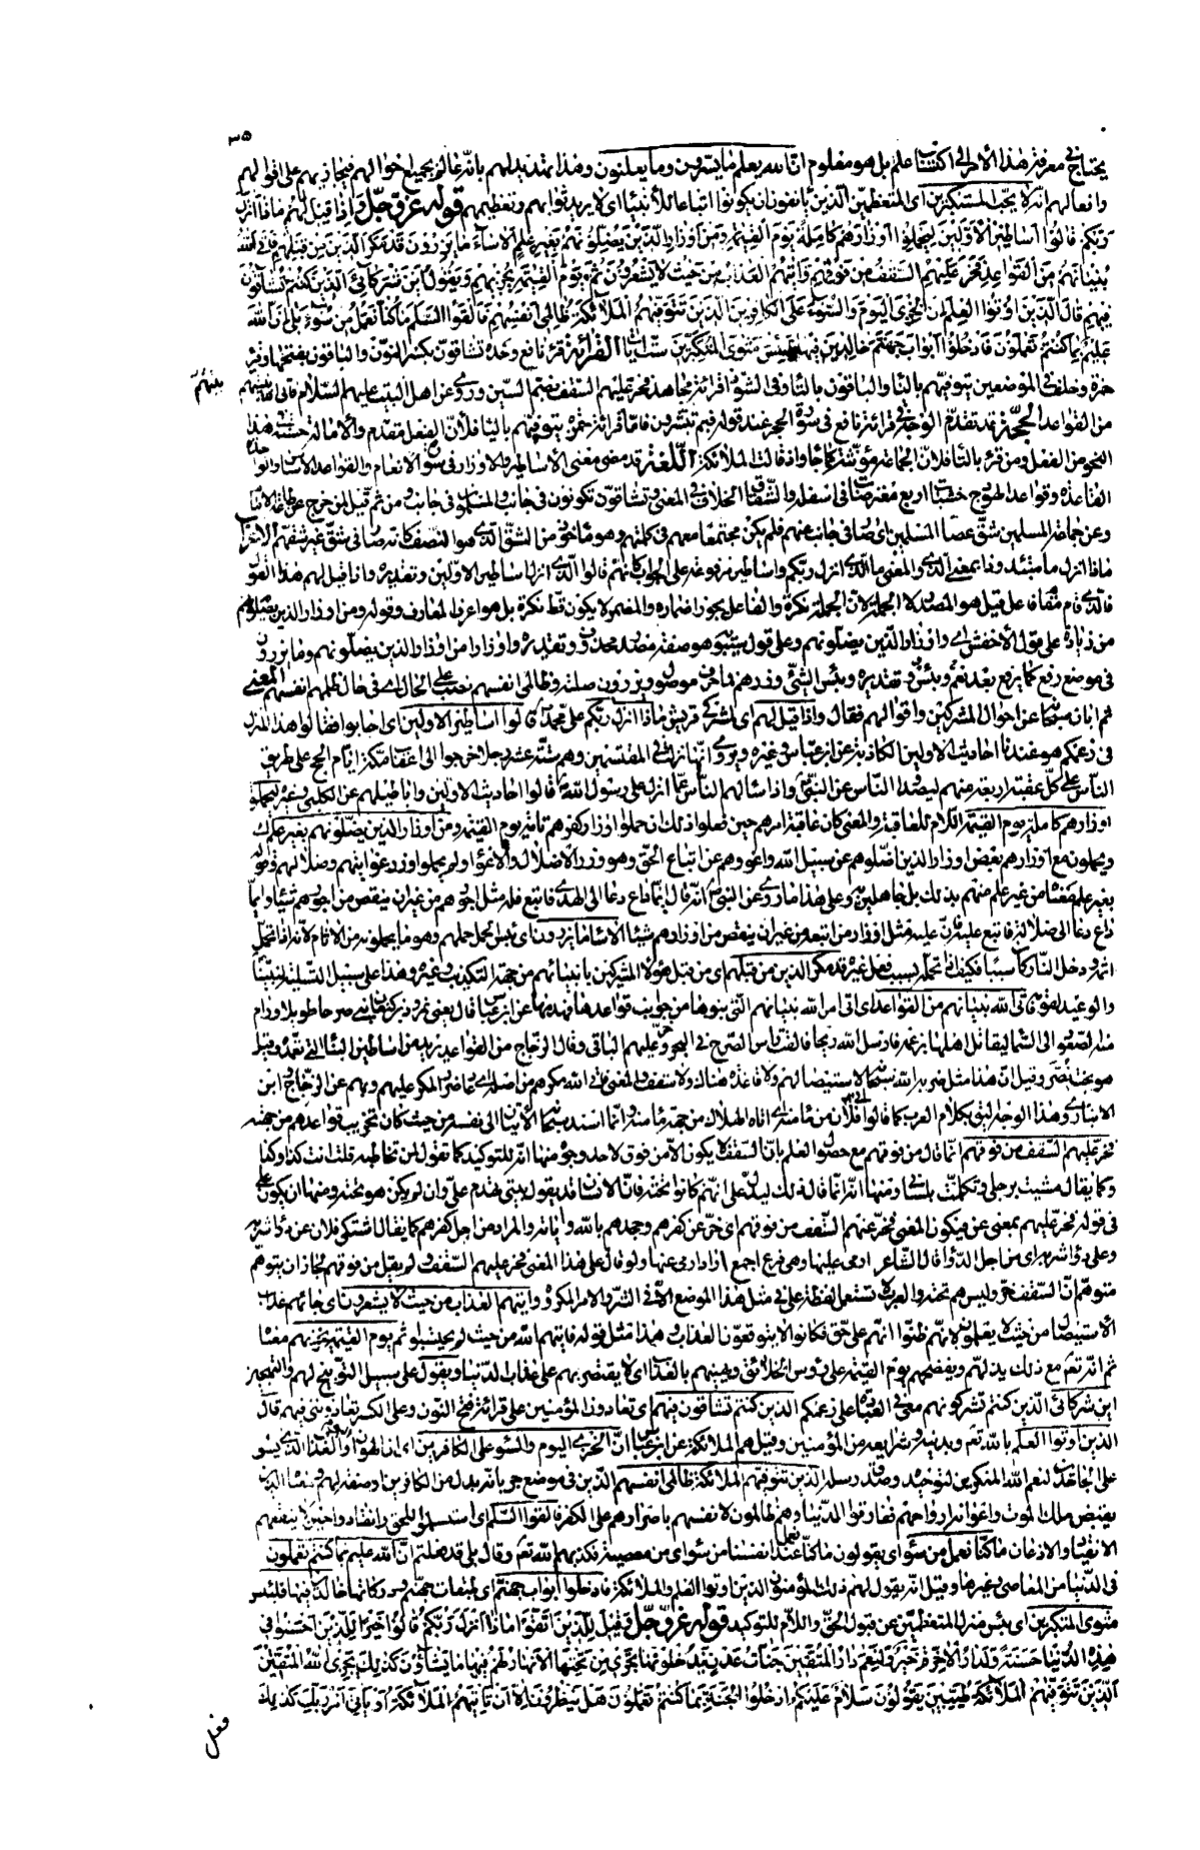 ٣٥
يحتاج في معرفة هذا الأمر إلى اكتساب علم بل هو معلوم ان الله يعلم ما يسرون وما يعلنون وهذا تهديد لهم بانه عالم بجميع احوالهم فيجازيهم على اقوالهم
وافعالهم انه لا يحب المستكبرين اى المتعظمين الذين يانفون ان يكونوا اتباعا للأنبياء اى لا يريد ثوابهم وتعظيمهم قوله عز وجل واذا قيل لهم ماذا انزل
ربكم قالوا اساطير الأولين ليحملوا أوزارهم كاملة يوم القيمة ومن أوزار الذين يضلونهم بغير علم الاساء ما يزرون قد مكر الذين من قبلهم فاتى الله
بنيانهم من القواعد فخر عليهم السقف من فوقهم واتيهم العذاب من حيث لا يشعرون ثم يوم القيمة يخزيهم ويقول اين شركائى الذين كنتم تشاقون
فيهم قال الذين اوتوا العلم ان الخزى اليوم والسوء على الكافرين الذين تتوفيهم الملائكة ظالمى انفسهم فالقوا السلم ما كنا نعمل من سوء بلى ان الله
عليم بما كنتم تعملون فادخلوا ابواب جهنم خالدين فيها فلبئس مثوى المتكبرين ست ايات القرائة قرء نافع وحده تشاقون بكسر النون والباقون بفتحها وقرء
حمزة وخلف فى الموضعين يتوفيهم بالياء والباقون بالتاء وفى الشواذ قرائة مجاهد فخر عليهم السقف بضم السين وروى عن اهل البيت عليهم السلام فاتى الله
من القواعد الحجة قد تقدم الوجه فى قرائة نافع فى سورة الحجر عند قوله فبم تبشرون فاما قرائة حمزة يتوفيهم بالياء فلأن الفعل مقدم والأمالة حسنة فى هذا
النحو من الفعل ومن قرء بالتاء فلان الجماعة مؤنثة كما جاء واذ قالت الملائكة اللغة قد مضى معنى الاساطير والاوزار فى سورة الانعام والقواعد الاساس واحدها
القاعدة وقواعد الهودج خشبات اربع معترضات فى اسفله والشقاق الخلاف فى المعنى وتشاقون تكونون فى جانب والمسلمون فى جانب ومن ثم قيل لمن خرج عن طاعة الامام
وعن جماعة المسلمين شق عصا المسلمين اى صار فى جانب عنهم فلم يكن مجتمعا معهم فى كلمتهم وهو مأخوذ من الشق الذى هو النصف كانه صار فى شق غير شقهم الاعراب
ماذا انزل ما مبتدء وذا بمعنى الذى والمعنى ما الذى انزل ربكم واساطير مرفوعة على الجواب كانهم قالوا الذى انزل اساطير الاولين وتقديره واذا قيل لهم هذا القول
فالذى قام مقام فاعل قيل هو المصدر لا الجملة لان الجملة نكرة والفاعل يجوز اضماره والمضمر لا يكون قط نكرة بل هو اعرف المعارف وقوله ومن اوزار الذين يضلونهم
من زيادة على قول الأخفش اى واوزار الذين يضلونهم وعلى قول سيبويه هو صفة مصدر محذوف وتقديره واوزارا من اوزار الذين يضلونهم وما يزرون
فى موضع رفع كما يرفع بعد نعم وبئس وتقديره وبئس الشئ وزرهم فما حرف موصول ويزرون صلته وظالمى انفسهم نصب على الحال اى فى حال ظلمهم انفسهم المعنى
ثم ابان سبحانه عن احوال المشركين واقوالهم فقال واذا قيل لهم اى لمشركى قريش ماذا انزل ربكم على محمد قالوا اساطير الاولين اى اجابوا فقالوا هذا المنزل
فى زعمكم هو عندنا احاديث الاولين الكاذبة عن ابن عباس وغيره ويروى انها نزلت فى المقتسمين وهم ستة عشر رجلا خرجوا الى عقاب مكة ايام الحج على طريق
الناس على كل عقبة اربعة منهم ليصدوا الناس عن النبى واذا سالهم الناس عما انزل على رسول الله قالوا احاديث الاولين واباطيلهم عن الكلبى وغيره ليحملوا
اوزارهم كاملة يوم القيمة اللام للعاقبة والمعنى كان عاقبة امرهم حين فعلوا ذلك ان حملوا اوزار كفرهم تامة يوم القيمة ومن اوزار الذين يضلونهم بغير علم اى
ويحملون مع اوزارهم بعض اوزار الذين اضلوهم عن سبيل الله واغووهم عن اتباع الحق وهو وزر الاضلال والاغواء ولم يحملوا وزر غوايتهم وضلالهم وقوله
بغير علم معناه من غير علم منهم بذلك بل جاهلين به وعلى هذا ما روى عن النبى انه قال ايما داع دعا الى الهدى فاتبع فله مثل اجورهم من غير ان ينقص من اجورهم شيئا وايما
داع دعا الى ضلالة فاتبع عليه فان عليه مثل اوزار من اتبعه من غير ان ينقص من اوزارهم شيئا الا ساء ما يزرون اى بئس الحمل حملهم وهو ما يحملونه من الاثام لانه اذا تحمل
اثمه ودخل النار كان سيئا فكيف اذا تحمله بسبب فعل غيره قد مكر الذين من قبلهم اى من قبل هؤلاء المشركين بانبيائهم من جهة التكذيب وغيره وهذا على سبيل التسلية لنبينا
والوعيد لقومه فاتى الله بنيانهم من القواعد اى اتى امر الله بنيانهم التى بنوها من جوانب قواعدها فهدمها عن ابن عباس قال يعنى نمرود بن كنعان بنى صرحا طويلا ورام
منه الصعود الى السماء ليقاتل اهلها بزعمه فارسل الله ريحا فالقت راس الصرح فى البحر وخر عليهم الباقى وقال الزجاج من القواعد يريد من اساطين البناء التى تعمده وقيل
هو بخت نصر وقيل ان هذا مثل ضربه الله سبحانه لاستيصالهم ولا قاعدة هناك ولا سقف والمعنى فاتى الله مكرهم من اصله اى عاد ضرر المكر عليهم وبهم عن الزجاج وابن
الانبارى وهذا الوجه اليق بكلام العرب كما قالوا اتى فلان من مأمنه اى اتاه الهلاك من جهة مأمنه وانما اسند سبحانه الاتيان الى نفسه من حيث كان تخريب قواعدهم من جهته
فخر عليهم السقف من فوقهم انما قال من فوقهم مع حصول العلم بان السقف لا يكون الا من فوق لاحد وجوه منها انه للتوكيد كما تقول لمن تخاطبه قلت انت كذا وكذا
وكما يقال مشيت برجلى وتكلمت بلسانى ومنها انه انما قال ذلك ليدل على انهم كانوا تحته فان الانسان قد يقول بيتى تهدم على وان لم يكن هو تحته ومنها ان يكون على
فى قوله فخر عليهم بمعنى عن فيكون المعنى فخر عنهم السقف من فوقهم اى خر عن كفرهم وجحدهم بالله واياته والمراد من اجل كفرهم كما يقال اشتكى فلان عن دواء شربه
وعلى دواء شربه اى من اجل الدواء قال الشاعر ارمى عليها وهى فرع اجمع اراد ارمى عنها ولو قال على هذا المعنى فخر عليهم السقف ولم يقل من فوقهم لجاز ان يتوهم
متوهم ان السقف خر وليس هم تحته والعرب لا تستعمل لفظة على فى مثل هذا الموضع الا فى الشر والامر المكروه واتيهم العذاب من حيث لا يشعرون اى جائهم عذاب
الأستيصال من حيث لا يعلمون لانهم ظنوا انهم على حق فكانوا لا يتوقعون العذاب هذا مثل قوله فاتيهم الله من حيث لم يحتسبوا ثم يوم القيمة يخزيهم معناه
ثم انه تعالى مع ذلك يذلهم ويفضحهم يوم القيمة على رؤس الخلائق ويهينهم بالعذاب اى لا يقتصر بهم على عذاب الدنيا ويقول على سبيل التوبيخ لهم والتهجين
اين شركائى الذين كنتم تشركونهم معى فى العبادة على زعمكم الذين كنتم تشاقون فيهم اى تعادون المؤمنين على قرائة فتح النون وعلى الكسر تعادوننى فيهم قال
الذين اوتوا العلم بالله تعالى وبدينه وشرايعه من المؤمنين وقيل هم الملائكة عن ابن عباس ان الخزى اليوم والسوء على الكافرين اى ان الهوان اليوم والعذاب الذى يسوء
على الجاحدين لنعم الله المنكرين لتوحيده وصدق رسله الذين تتوفيهم الملائكة ظالمى انفسهم الذين فى موضع جر بانه بدل من الكافرين او صفة لهم ومعناه الذين
يقبض ملك الموت واعوانه ارواحهم ففارقوا الدنيا وهم ظالمون لانفسهم باصرارهم على الكفر فالقوا السلم اى استسلموا للحق وانقادوا حين لا ينفعهم
الانقياد والاذعان ما كنا نعمل من سوء اى يقولون ما كنا نعمل عند انفسنا من سوء اى من معصية فكذبهم الله تعالى وقال بلى قد فعلتم ان الله عليم بما كنتم تعملون
فى الدنيا من المعاصى وغيرها وقيل انه يقول لهم ذلك المؤمنون الذين اوتوا العلم والملائكة فادخلوا ابواب جهنم اى طبقات جهنم ودركاتها خالدين فيها فلبئس
مثوى المتكبرين اى بئس منزل المتعظمين عن قبول الحق واللام للتوكيد قوله عز وجل وقيل للذين اتقوا ماذا انزل ربكم قالوا خيرا للذين احسنوا فى
هذه الدنيا حسنة ولدار الآخرة خير ولنعم دار المتقين جنات عدن يدخلونها تجرى من تحتها الأنهار لهم فيها ما يشاؤن كذلك يجزى الله المتقين
الذين تتوفيهم الملائكة طيبين يقولون سلام عليكم ادخلوا الجنة بما كنتم تعملون هل ينظرون الا ان تأتيهم الملائكة او يأتى امر ربك كذلك
فعل